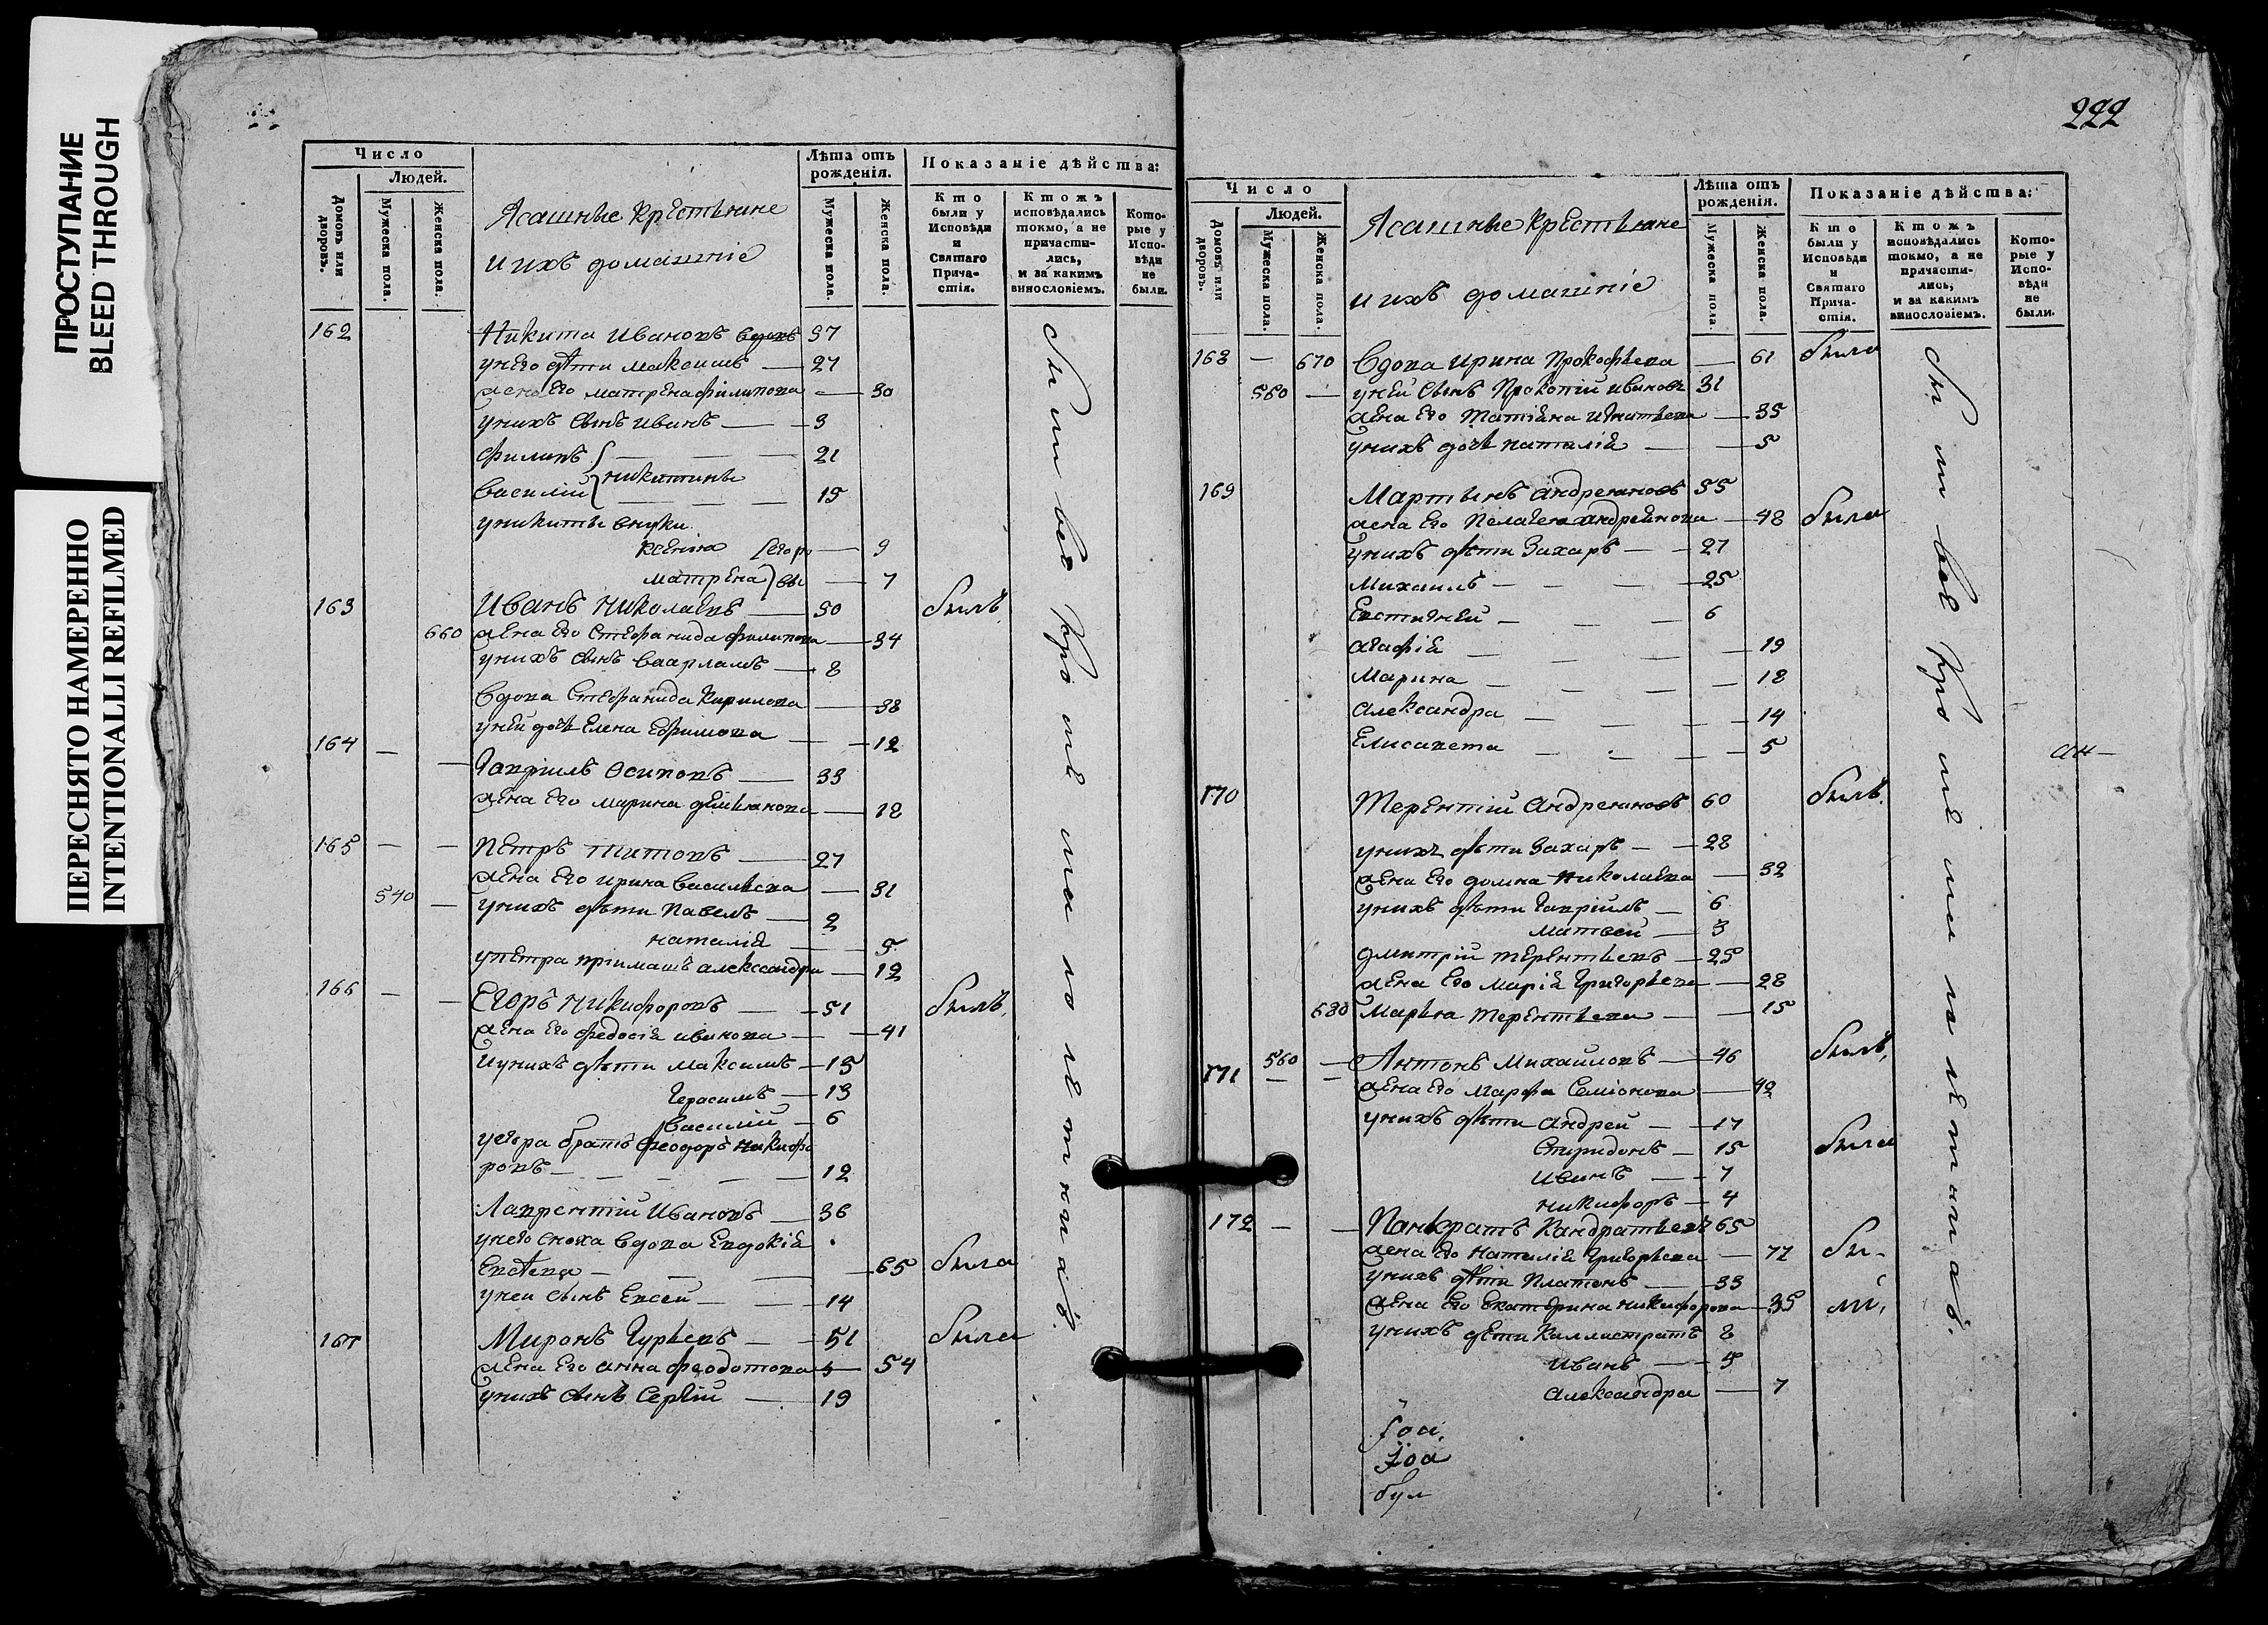 ПРОСТУПАНИЕ
BLEED THROUGH
ПЕРЕСНЯТО НАМЕРЕННО
INTENTIONALLI REFILMED
Число
Людей.
Домовъ или дворовъ.
Мужеска пола.
Женска пола.
Ясашные крестьяне
и ихъ домашніе
Лѣта отъ рожденія.
Мужеска пола.
Женска пола.
Показаніе дѣйства:
Кто были у Исповѣди и Святаго Причастія.
Ктожъ исповѣдались токмо, а не причастились, и за какимъ винословіемъ.
Которые у Исповѣди не были.
162 Никита Ивановъ вдовъ 57
у него дѣти Максимъ 27
жена его матрена филипова 30
у нихъ сынъ иванъ 3
филипъ 21
василій никитины 15
у никиты внуки
ксенія 9
матрена 7
163 Иванъ Николаевъ 30 былъ
660 жена его Стефанида филипова 34
у нихъ сынъ Ваарламъ 8
вдова Стефанида Кирилова 38
у ней дочь Елена Ефимова 12
164 — — Гавріилъ Осиповъ 33
жена его марина демьянова 18
165 — — Петръ Титовъ 27
жена его ирина васильева 31
540 — у нихъ дѣти Павелъ 2
наталія 5
у петра пріимашъ александра 12
166 — — Егоръ Никифоровъ 51 былъ
жена его федосія иванова 41
и у нихъ дѣти Максимъ 15
Герасимъ 13
василій 6
у егора братъ феодоръ никифо
ровъ 12
Лаврентій Ивановъ 36
у него сноха вдова Евдокія
65 была
у ней сынъ Евсей 14
167 Миронъ Гурьевъ 51 были
жена его анна феодотова 54
у нихъ сынъ Сергій 19
222
Число
Людей.
Домовъ или дворовъ.
Мужеска пола.
Женска пола.
Ясашные крестьяне
и ихъ домашніе
Лѣта отъ рожденія.
Мужеска пола.
Женска пола.
Показаніе дѣйства:
Кто были у Исповѣди и Святаго Причастія.
Ктожъ исповѣдались токмо, а не причастились, и за какимъ винословіемъ.
Которые у Исповѣди не были.
168 — 670 Вдова ирина Прокофьева 61 была
550 — у ней сынъ Прокопій ивановъ 31
жена его Татіана игнатьева 35
у нихъ дочь наталія 5
169 Мартынъ андреяновъ 55
жена его Пелагея андреянова 48 были
у нихъ дѣти Захаръ 27
Михаилъ 25
Евстигней 6
агафія 19
Марина 18
александра 14
Елисавета 5
170 Терентій андреяновъ 60 былъ
у нихъ дѣти Захаръ 28
жена его домна николаева 32
у нихъ дѣти Гавріилъ 6
матвей 3
дмитрій терентьевъ 25
жена его марія григорьева 28
680 Марья терентьева 15
560 —
171 — — Антонъ Михайловъ 46 былъ
жена его Марфа Семіонова 42
у нихъ дѣти Андрей 17
Спиридонъ 15 были
иванъ 7
никифоръ 4
172 — — Панкратъ Кандратьевъ 65
жена его наталія григорьева 77 бы-
у нихъ дѣти Платонъ 33
жена его Екатерина никифорова 35 ли
у нихъ дети Каллистратъ 8
иванъ 5
александра 7